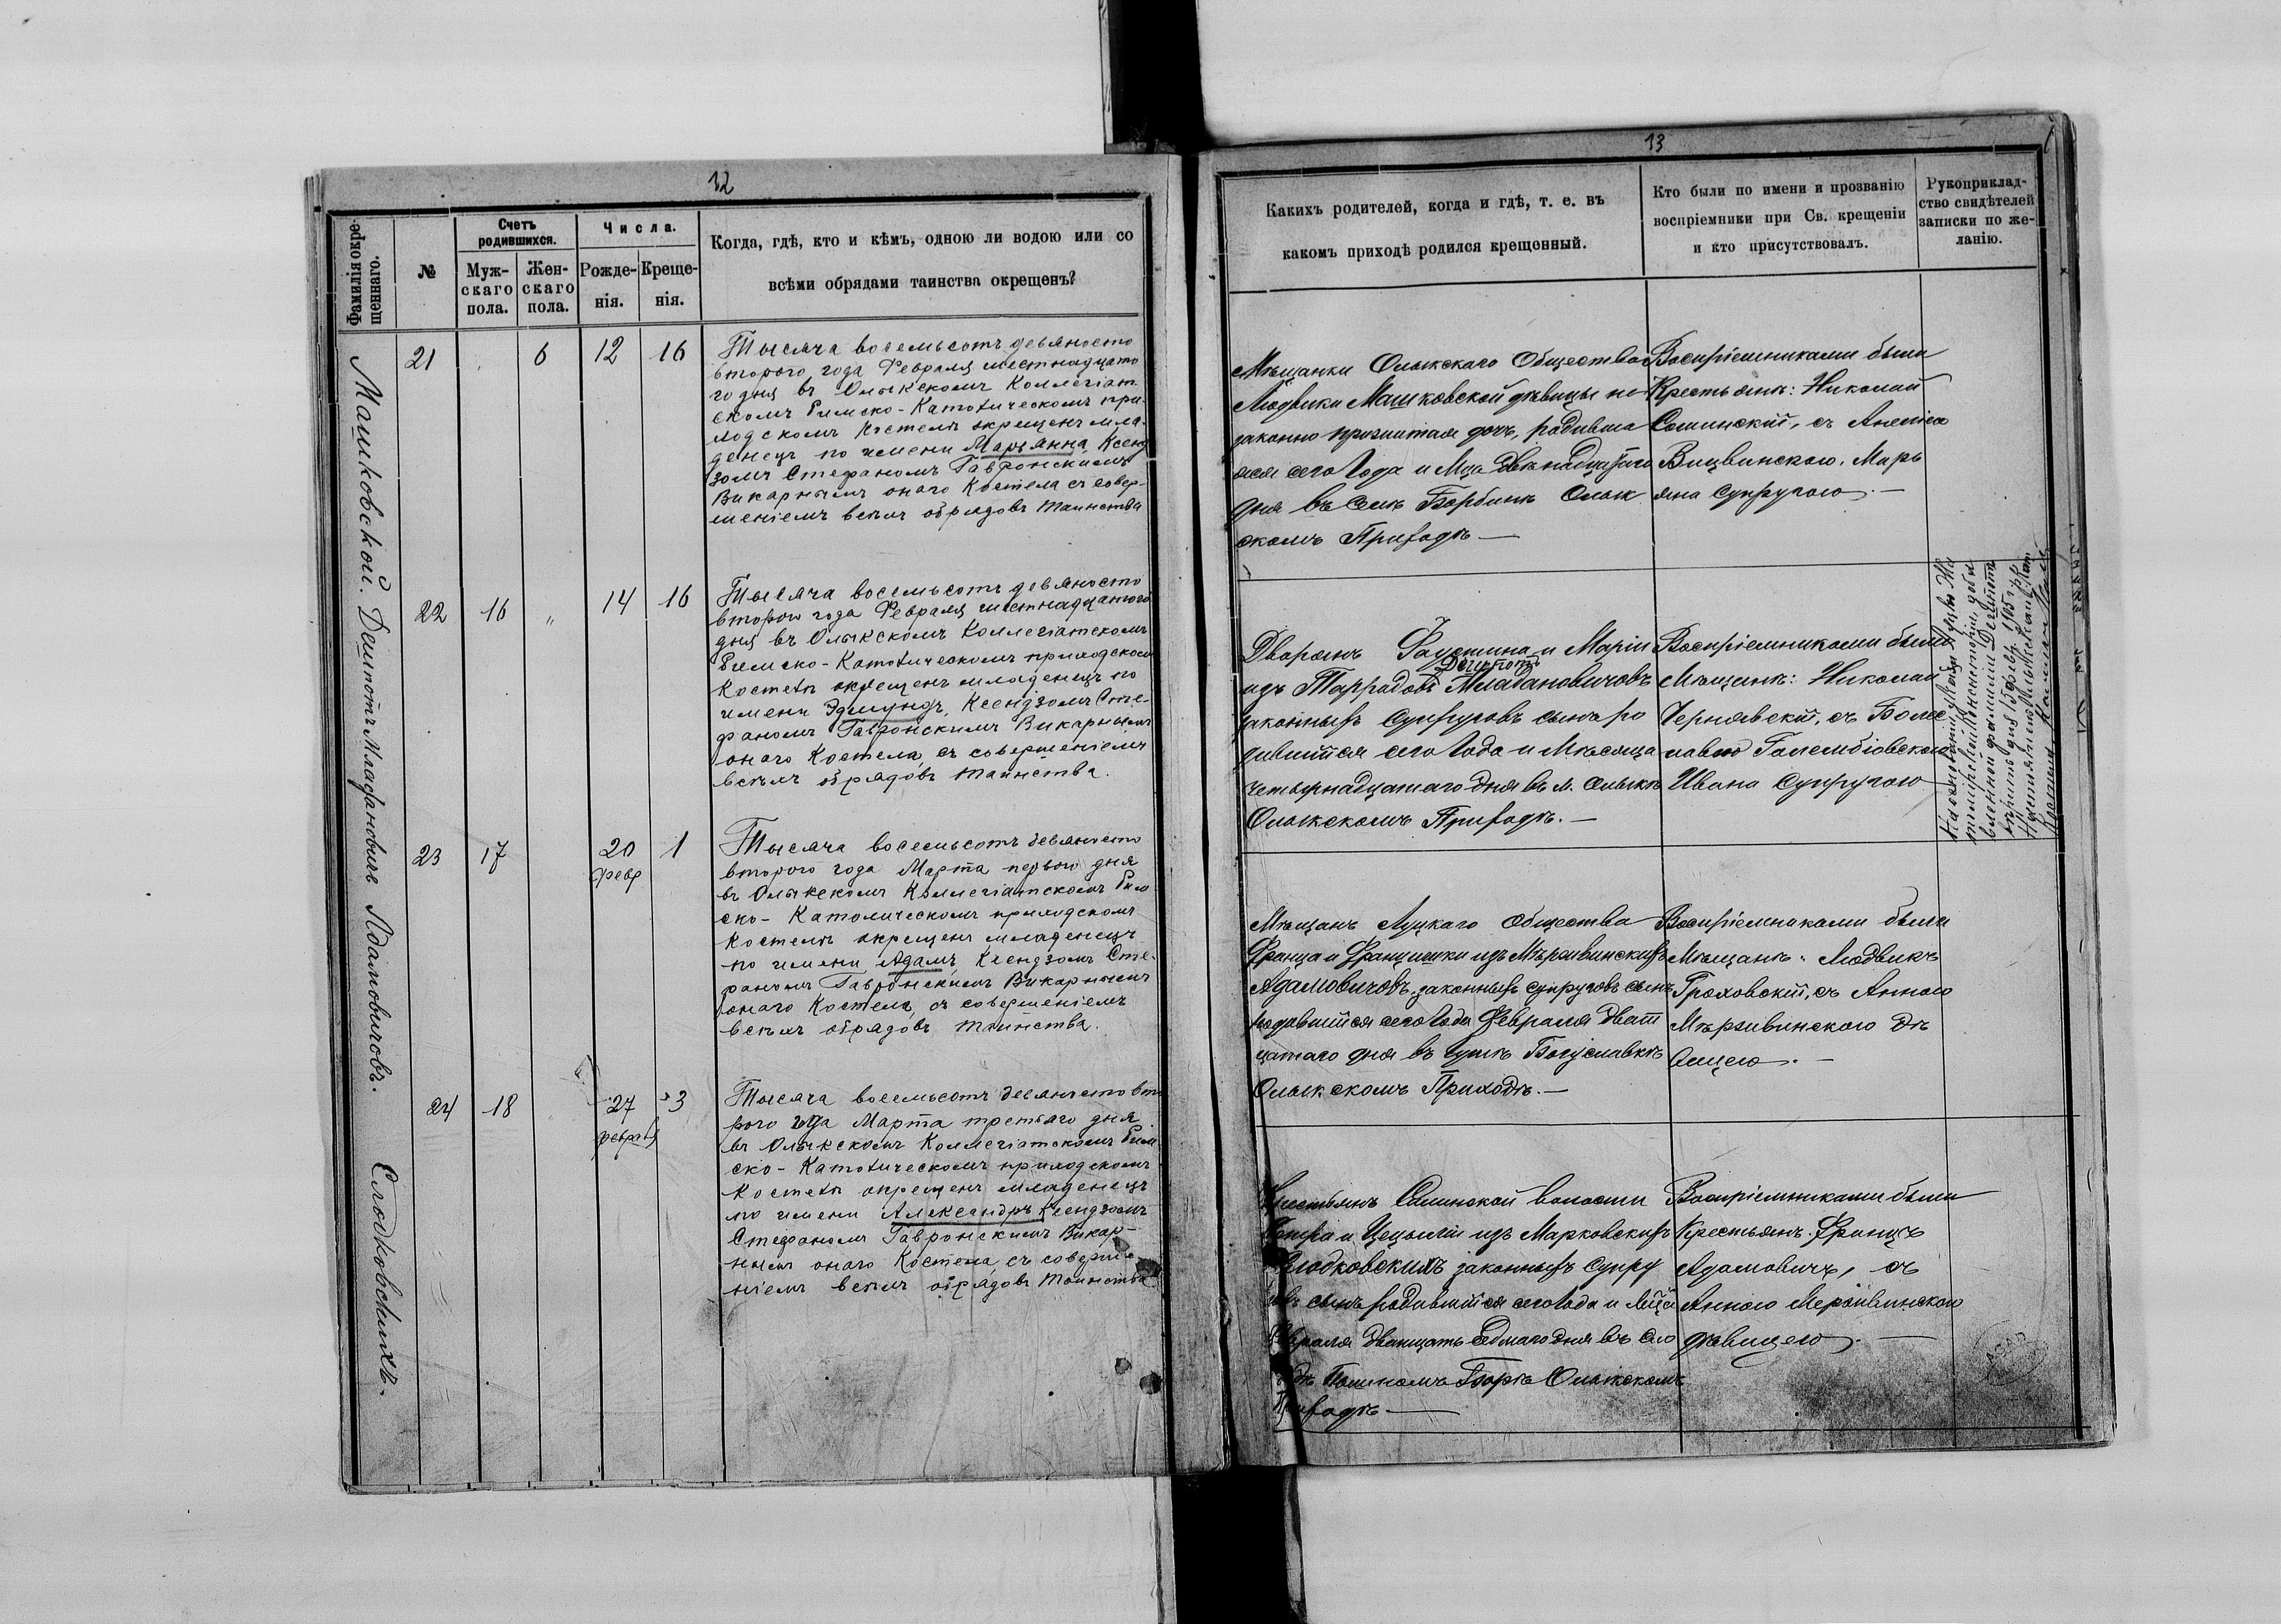 12
Фамилія окре-
щеннаго.
№
Счетъ
родившихся.
Муж-
скаго
пола.
Жен-
скаго
пола.
Числа.
Рожде-
нія.
Креще-
нія.
Когда, гдѣ, кто и кѣмъ, одною ли водою или со
всѣми обрядами таинства окрещенъ?
Машковской.
21
6
12
16
Тысяча восемьсотъ девяносто
второго года Февраля шестнадцато
го дня въ Олыкскомъ Коллегіат
скомъ Римско-Католическомъ при-
ходскомъ Костелѣ окрещенъ мла-
денецъ по имени Марьянна, Ксенд
зомъ Стефаномъ Гавронскимъ
Викарнымъ онаго Костела съ совер-
шеніемъ всѣхъ обрядовъ таинства
Деспотъ Младановичъ
22
16
"
14
16
Тысяча восемьсотъ девяносто
второго года Февраля шестнадцатого
дня въ Олыкскомъ Коллегіатскомъ
Римско-Католическомъ приходском
Костелѣ окрещенъ младенецъ по
имени Эдмундъ, Ксендзомъ Сте-
фаномъ Гавронскимъ Викарнымъ
онаго Костела, съ совершеніемъ
всѣхъ обрядовъ таинства.
Адамовичовъ.
23
17
20
Февр
1
Тысяча восемьсотъ девяносто
второго года Марта первого дня
въ Олыкскомъ Коллегіатскомъ Рим
ско-Католическомъ приходскомъ
Костелѣ окрещенъ младенецъ
по имени Адамъ, Ксендзомъ Сте-
фаномъ Гавронскимъ Викарнымъ
онаго Костела, съ совершеніемъ
всѣхъ обрядовъ таинства.
Елодковскихъ.
24
18
27
Февраля
3
Тысяча восемьсотъ девяносто вто
рого года Марта третьяго дня
въ Олыкскомъ Коллегіатскомъ Рим
ско-Католическомъ приходскомъ
Костелѣ окрещенъ младенецъ
по имени Александръ Ксендзомъ
Стефаномъ Гавронскимъ Викар-
нымъ онаго Костела, съ соверше-
ніемъ всѣхъ обрядовъ таинства
13
Какихъ родителей, когда и гдѣ, т. е. въ
какомъ приходѣ родился крещенный.
Кто были по имени и прозванію
воспріемники при Св. крещеніи
и кто присутствовалъ.
Рукоприклад-
ство свидѣтелей
записки по же-
ланію.
Мѣщанки Олыкскаго Общества
Людвики Машковской дѣвицы не
законно прижитая дочь, родивша
яся сего Года и Мца Двѣнадцатаго
дня въ Селѣ Олык
скомъ Приходѣ —
Воспріемниками были
Крестьянѣ: Николай
Соминскій, съ
Марь
яна Супругою. —
Дворянъ Фаустина и Маріи
Деспотъ
изъ Младановичовъ
законныхъ Супруговъ сынъ ро
дившійся сего Года и Мѣсяца
четырнадцатаго дня въ м. Олыкѣ
Олыкскомъ Приходѣ. —
Воспріемниками были
Мѣщанѣ: Николай
Чернявскій, съ Болес
лавою Голембіовскою
Ивана Супругою
Мѣщанъ Луцкаго Общества
Франца и Францишки изъ Мѣрзвинскихъ
Адамовичовъ, законныхъ супруговъ сынъ
родившійся сего Года Февраля Двад
цатаго дня въ Богуславкѣ
Олыкскомъ Приходѣ. —
Воспріемниками были
Мѣщанѣ: Людвикъ
Гроховскій, съ Анною
Мѣрзвинскою Дѣ
вицею. —
Крестьянъ волости
Петра и Цециліи изъ Марковскихъ
Елодковскихъ законныхъ Супру
говъ сынъ родившійся сего Года и Мца
Февраля Двадцать Седмаго дня въ
Олыкскомъ
Приходѣ —
Воспріемниками были
Крестьянѣ: Францъ
Адамовичъ, съ
Анною Мерзвинскою
дѣвицею. —